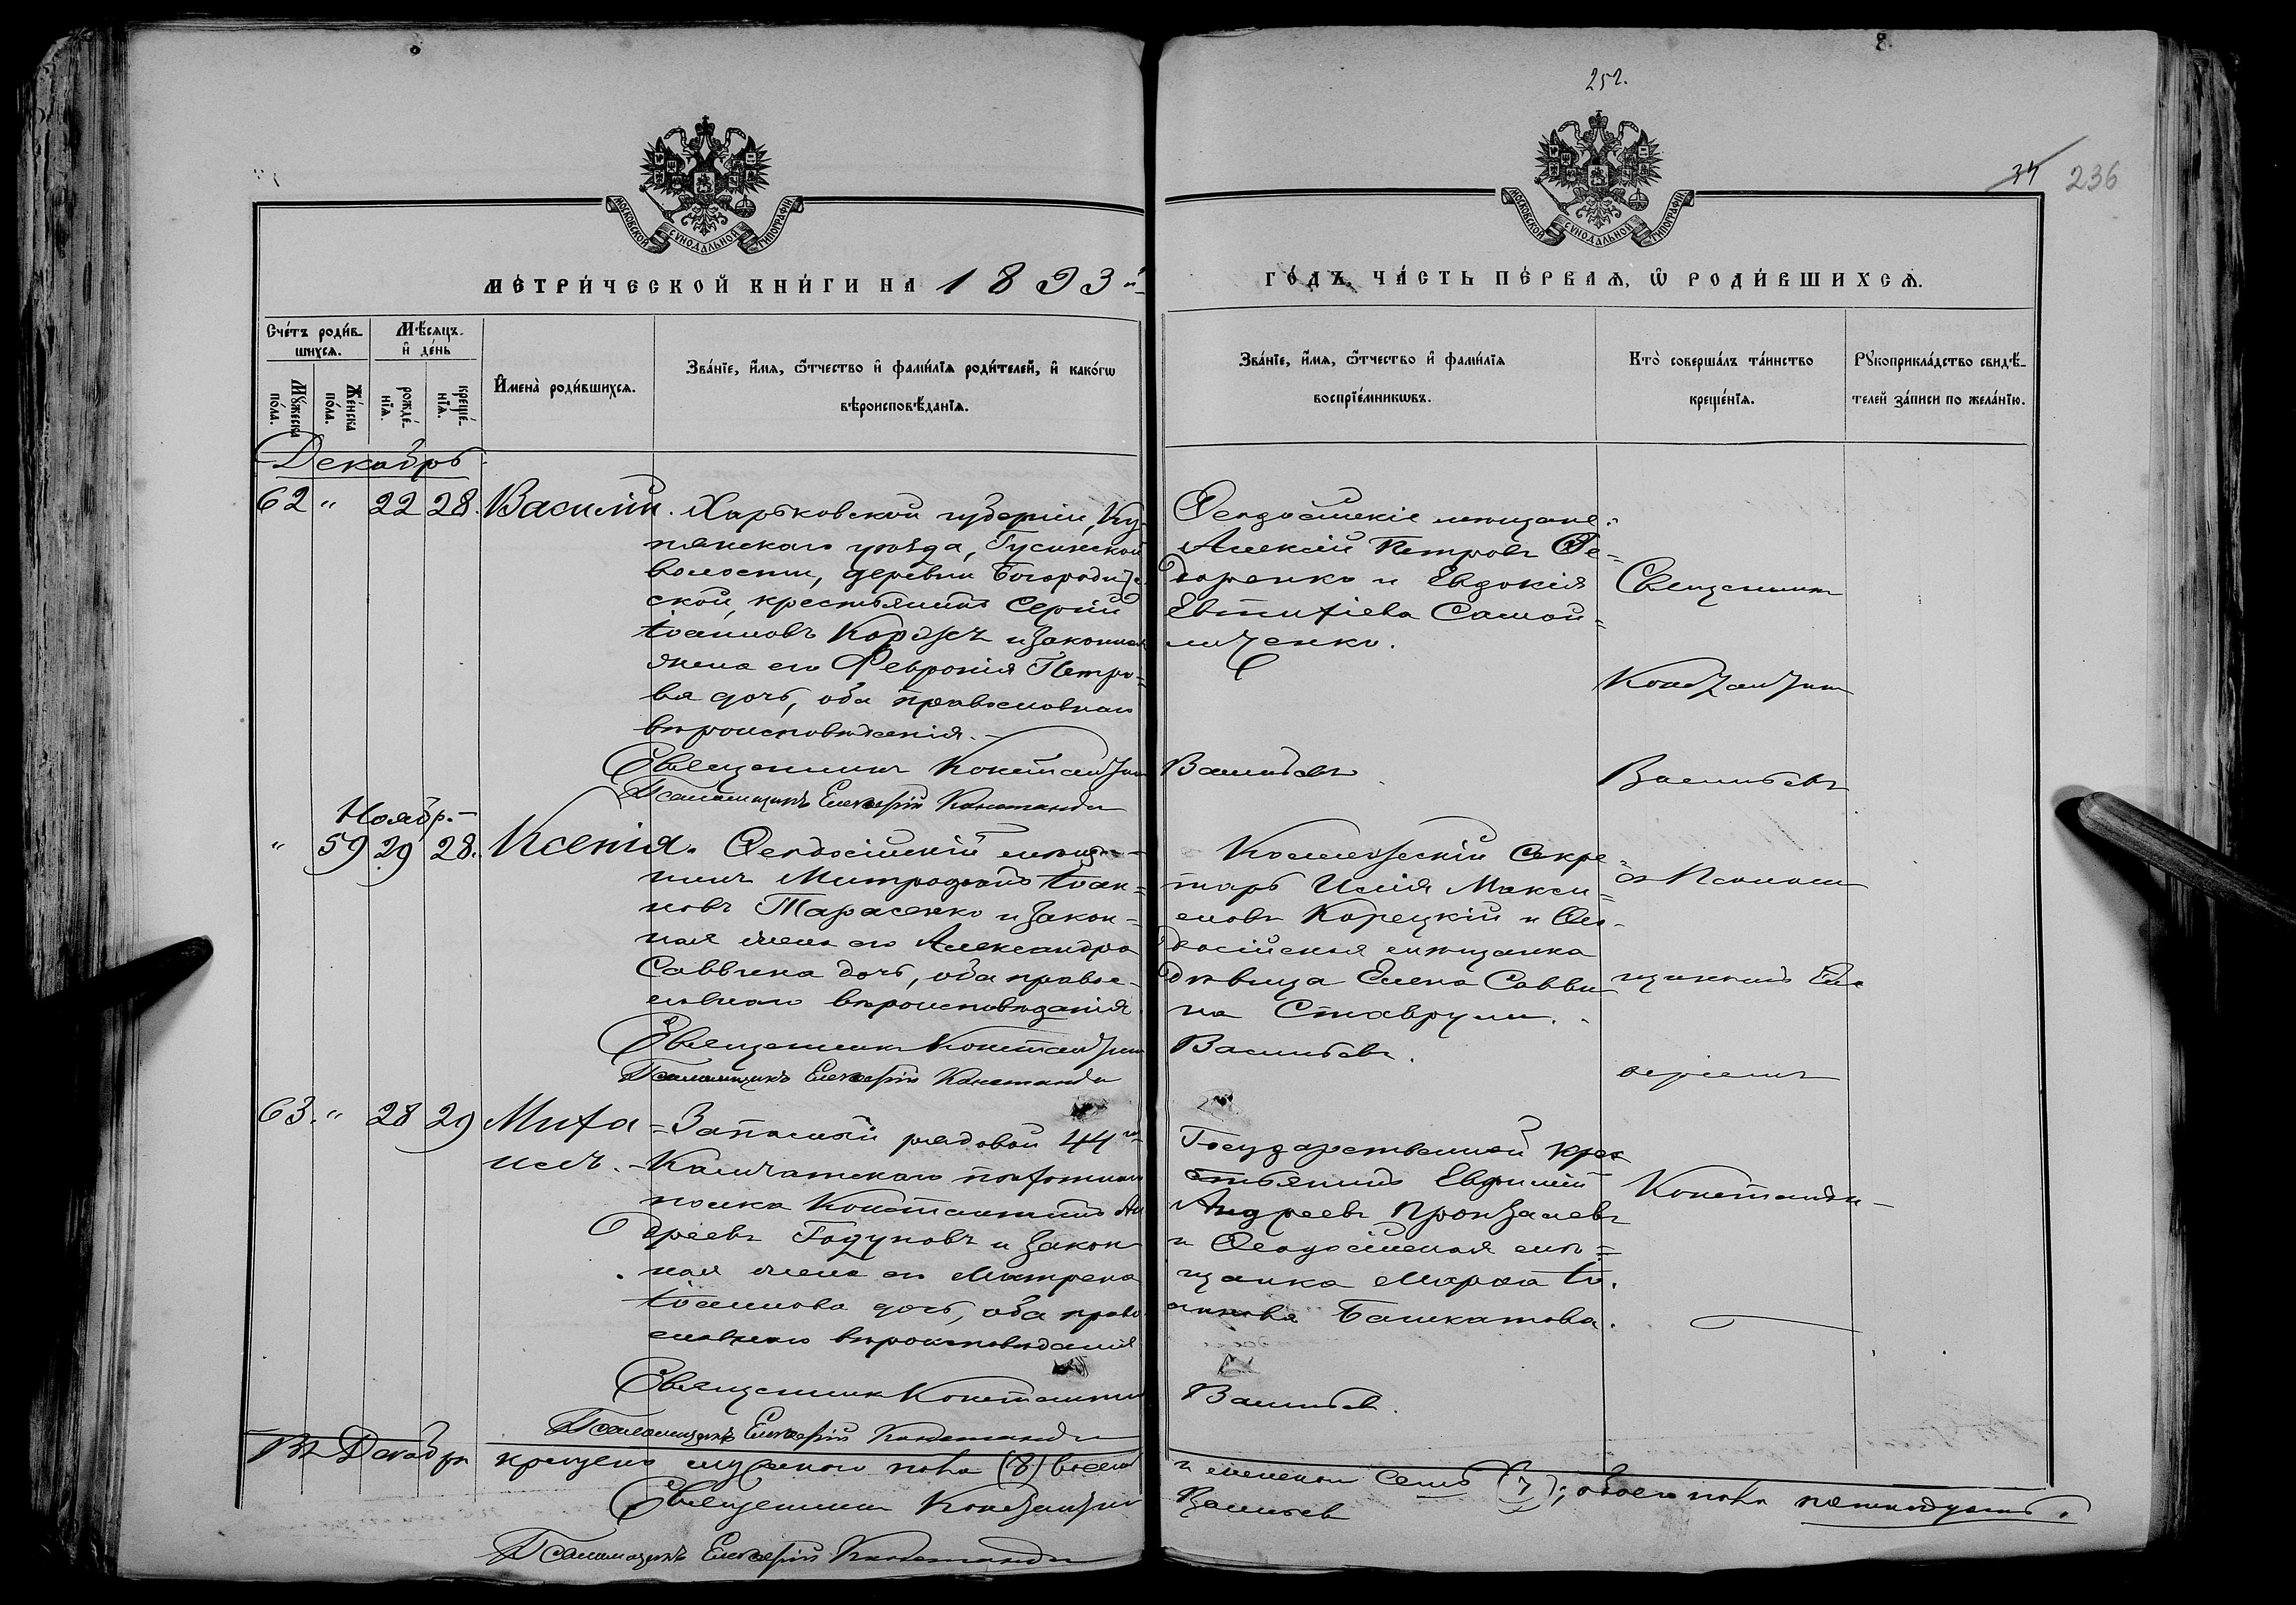 252.
34 236
МОСКОВСКОЙ СѴНОДАЛЬНОЙ ТИПОГРАФІИ
МОСКОВСКОЙ СѴНОДАЛЬНОЙ ТИПОГРАФІИ
МЕТРИ́ЧЕСКОЙ КНИ́ГИ НА 1893й
ГО́ДЪ, ЧА́СТЬ ПЕ́РВАѦ, Ѽ РОДИ́ВШИХСѦ.
Сче́тъ роди́в-
шихсѧ.
Мѣ́сѧцъ
и҆ де́нь
Мꙋ́жеска по́ла.
Же́нска по́ла.
рожде́нїѧ.
креще́нїѧ.
И҆мена̀ роди́вшихсѧ.
Зва́нїе, и҆́мѧ, ѻ҆́тчество и҆ фами́лїѧ роди́телей, и҆ како́гѡ
вѣроисповѣ́данїѧ.
Зва́нїе, и҆́мѧ, ѻ҆́тчество и҆ фами́лїѧ
воспрїе́мникѡвъ.
Кто̀ соверша́лъ та́инство
креще́нїѧ.
Рꙋкоприкла́дство свидѣ́-
телей за́писи по жела́нїю.
Декабрь
62 " 22 28. Василій. Харьковской губерніи, Ку-
пянскаго уѣзда, Гусинской
волости, деревни Богородиц-
ской, крестьянинъ Сергій
Іоанновъ и законная
жена его Февронія Петро-
ва дочь, оба православнаго
вѣроисповѣданія.
Священникъ Константинъ
Псаломщикъ Елевферій Константи
Ѳеодосійскіе мѣщане:
Алексій Петровъ Ѳе-
доренко и Евдокія
Евтихіева Самой-
личенко.
Васильевъ
Священникъ
Константинъ
Васильевъ
Ноябр.
" 59 29 28. Ксенія. Ѳеодосійскій мѣща-
нинъ Митрофанъ Іоан-
новъ Тарасенко и закон-
ная жена его Александра
Саввина дочь, оба право-
славнаго вѣроисповѣданія.
Священникъ Константинъ
Псаломщикъ Елевферій Константи
Коллежскій Секре-
тарь Илія Макси-
мовъ Корецкій и Ѳео-
досійская мѣщанка
дѣвица Елена Савви-
на Ставрули.
Васильевъ.
съ Псалом
щикомъ Еле
веріемъ
Константи
63. " 28 29 Миха-
илъ. Запасный рядовой 44го
Камчатскаго пѣхотнаго
полка Константинъ Ан
дреевъ Годуновъ и закон
ная жена его Матрена
Іоаннова дочь, оба право
славнаго вѣроисповѣданія
Священникъ Константинъ
Псаломщикъ Елевферій Константи
Государственный кре
стьянинъ Евфимій
Андреевъ
и Ѳеодосійская мѣ-
щанка Марѳа Іо-
аннова Башкатова.
Васильевъ.
Въ Декабрѣ крещено мужскаго пола (8) восемь
и женскаго семь (7); обоего пола пятнадцать.
Священникъ Константинъ Васильевъ
Псаломщикъ Елевферій Константи